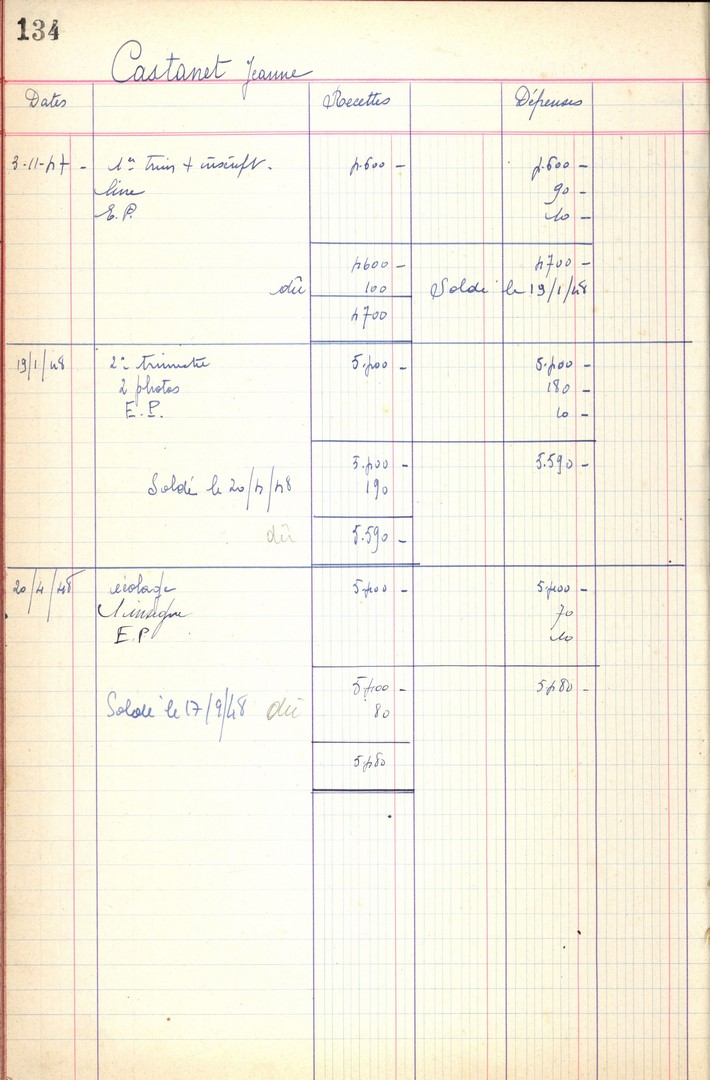 134
Castanet Jeanne
Dates Recettes Dépenses
3-11-47 - 1er trim + inscript. 4.600 - 4.600 -
livre 90 -
E.P. 10 -
4600 - 4700 -
dû 100 Soldé le 19/1/48
4700
19/1/48 2e trimestre 5.400 - 5.400 -
2 photos 180 -
E.P. 10 -
5.400 - 5.590 -
Soldé le 20/4/48 190
dû 5.590 -
20/4/48 écolage 5400 - 5400 -
1 insigne 70
E.P 10
5400 - 5480 -
Soldé le 17/9/48 dû 80
5480